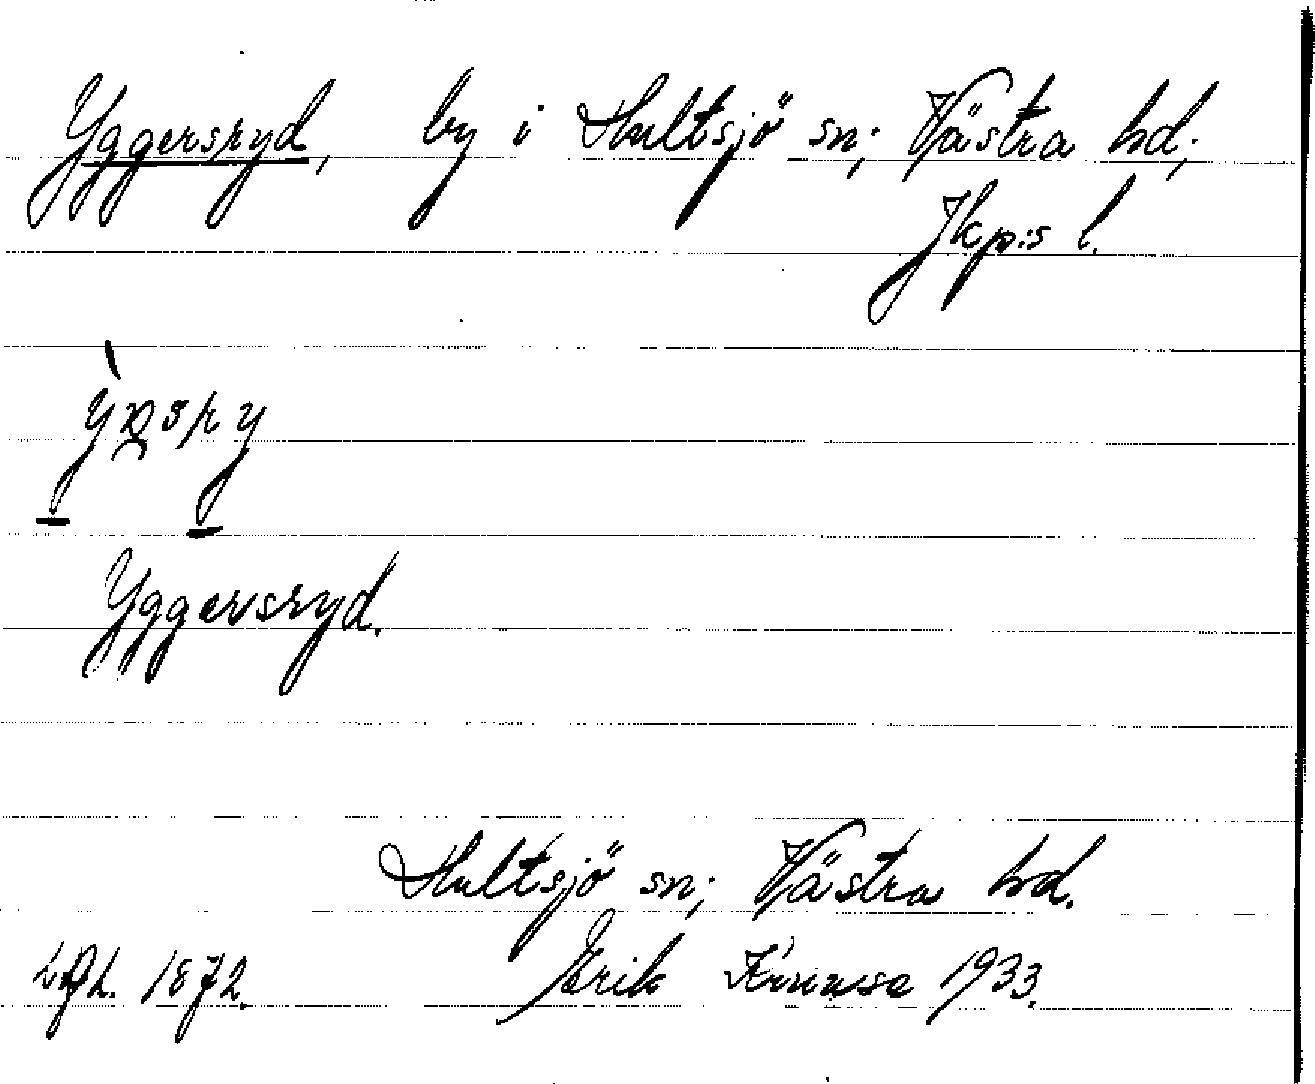 Yggersryd, by i Hultsjö sn; Västra hd;
Jkp:s l.
Yggersryd.
Hultsjö sn; Västra hd.
1872. Erik 1933.